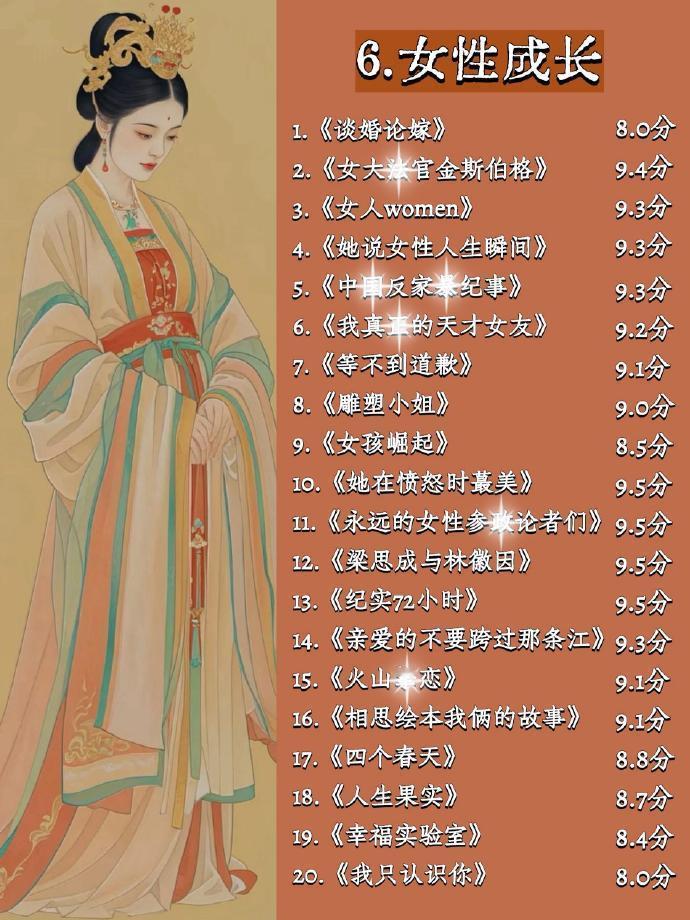 6.女性成长
1.《谈婚论嫁》 8.0分
2.《女大法官金斯伯格》 9.4分
3.《女人women》 9.3分
4.《她说女性人生瞬间》 9.3分
5.《中国反家暴纪事》 9.3分
6.《我真正的天才女友》 9.2分
7.《等不到道歉》 9.1分
8.《雕塑小姐》 9.0分
9.《女孩崛起》 8.5分
10.《她在愤怒时蕞美》 9.5分
11.《永远的女性参政论者们》 9.5分
12.《梁思成与林徽因》 9.5分
13.《纪实72小时》 9.5分
14.《亲爱的不要跨过那条江》 9.3分
15.《火山挚恋》 9.1分
16.《相思绘本我俩的故事》 9.1分
17.《四个春天》 8.8分
18.《人生果实》 8.7分
19.《幸福实验室》 8.4分
20.《我只认识你》 8.0分